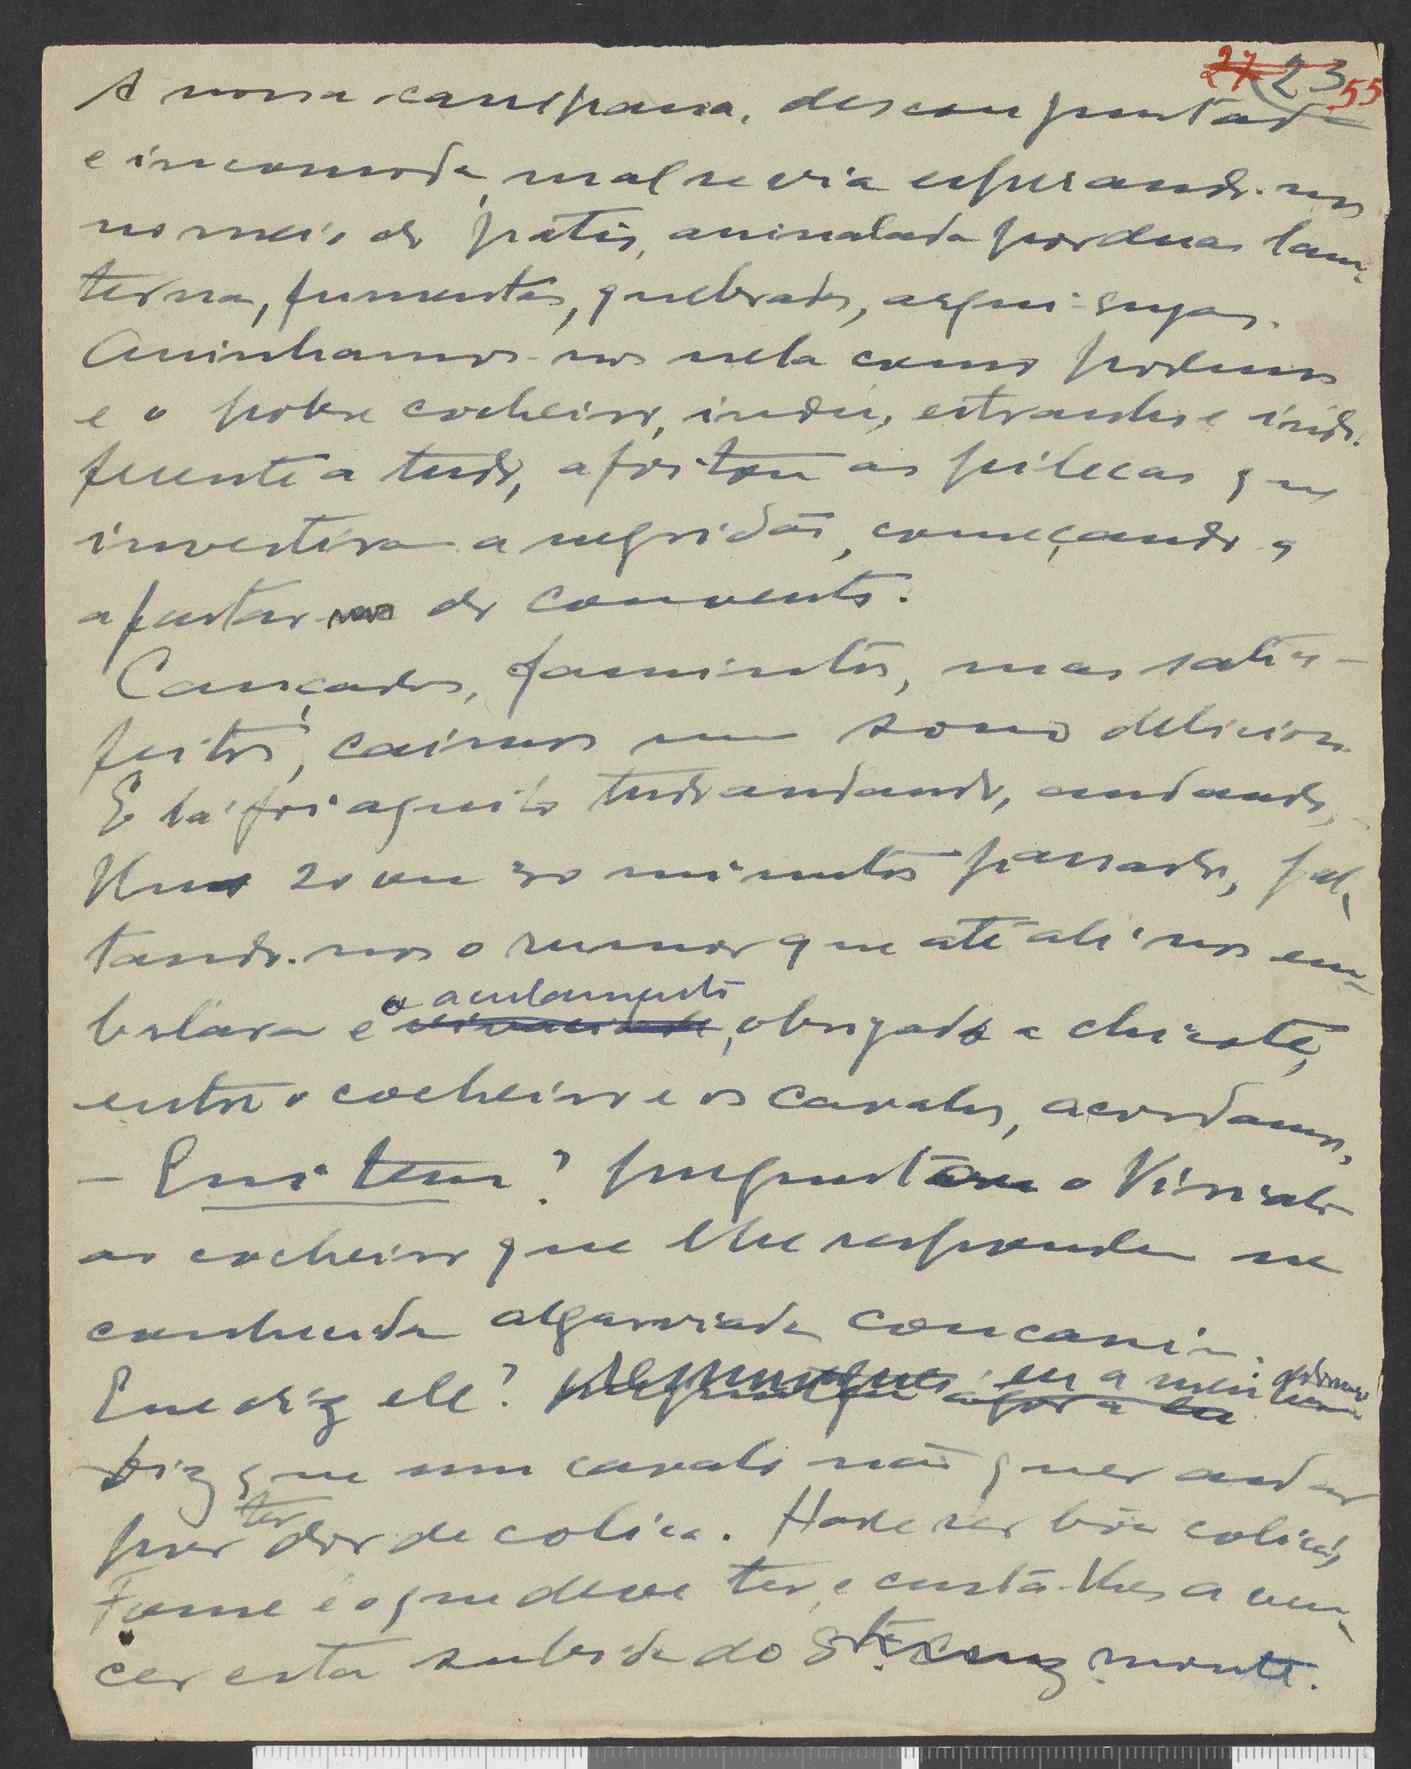 27 23 55
A nossa carripana, desconjuntada
e incomoda, mal se via esperando-nos
no meio do patio, assinalada por duas lan-
ternas, fumentas, quebradas,
Aninhamos-nos nela como podemos
e o pobre cocheiro, indú, estranho e indi-
ferente a tudo, afoitou as pilecas que
investiram a negridão, começando a
afastar-nos do convento.
Cançados, famintos, mas satis-
feitos, caimos num sono delicioso.
E lá foi aquilo tudo andando, andando,
Uns 20 ou 30 minutos passados, fal-
tando-nos o rumor que até ali nos em-
balara e o açulamento vivacidade, obrigado a chicote,
entre o cocheiro e os cavalos, acordamos.
- Eni tem? preguntou o Visconde
ao cocheiro que lhe respondeu na
conhecida algaraviada concanim.
Que diz ele? preguntei eu a meu
Diz que um cavalo não quer andar
por ter dor de colica. Hade ser bôa colica,
Fome é o que deve ter, e custa-lhes a ven-
cer esta subida do Sta. Cruz monte.